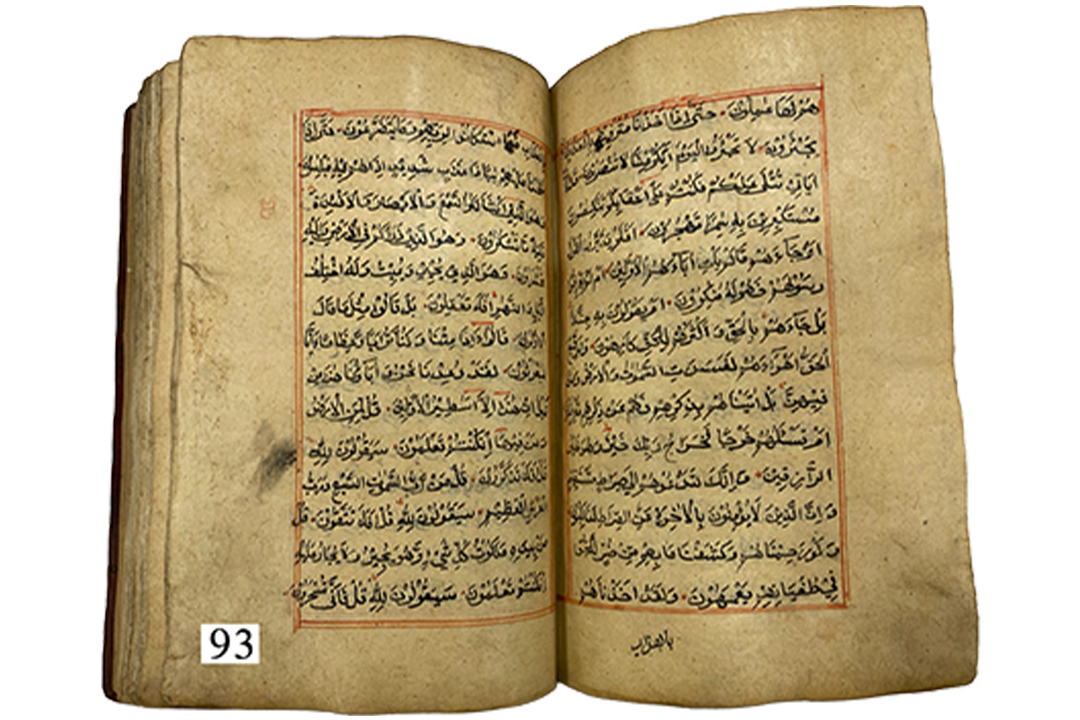 هم لها عملون حتى اذا اخذنا مترفيهم بالعذاب
يجئرون لا تجئروا اليوم انكم منا لا تنصرون قد
اياتي تتلى عليكم فكنتم على اعقابكم تنكصون
مستكبرين به سمرا تهجرون افلم يدبروا القول
ام جاءهم ما لم يات اباءهم الاولين ام لم يعرفوا
رسولهم فهم له منكرون ام يقولون به جنة
بل جاءهم بالحق و اكثرهم للحق كارهون ولو اتبع
الحق اهواءهم لفسدت السموت والارض ومن
فيهن بل اتيناهم بذكرهم فهم عن ذكرهم
ام تسئلهم خرجا فخراج ربك خير وهو خير
الرازقين وانك لتدعوهم الى صراط مستقيم
وان الذين لا يؤمنون بالاخرة عن الصراط لناكبون
ولو رحمناهم وكشفنا ما بهم من ضر للجوا
في طغيانهم يعمهون ولقد اخذناهم
بالعذاب
بالعذاب فما استكانوا لربهم وما يتضرعون حتى اذا
فتحنا عليهم بابا ذا عذاب شديد اذا هم فيه مبلسون
وهو الذي انشا لكم السمع والابصار والافئدة
قليلا ما تشكرون وهو الذي ذراكم في الارض واليه
تحشرون وهو الذي يحيي ويميت وله اختلف
اليل والنهار افلا تعقلون بل قالوا مثل ما قال
الاولون قالوا ءاذا متنا وكنا ترابا وعظاما ءانا
لمبعوثون لقد وعدنا نحن واباؤنا هذا من
قبل ان هذا الا اسطير الاولين قل لمن الارض
ومن فيها ان كنتم تعلمون سيقولون لله
قل افلا تذكرون قل من رب السموت السبع ورب
العرش العظيم سيقولون لله قل افلا تتقون قل
من بيده ملكوت كل شيء وهو يجير ولا يجار عليه
ان كنتم تعلمون سيقولون لله قل فانى تسحرون
93